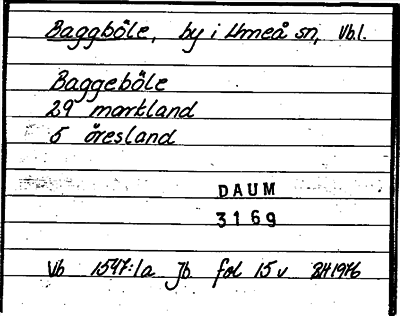 Baggböle, by i Umeå sn, Vb.l.
Baggeböle
29 markland
5 öresland
DAUM
3169
Vb 1547:1a Jb fol 15 v BH 1976